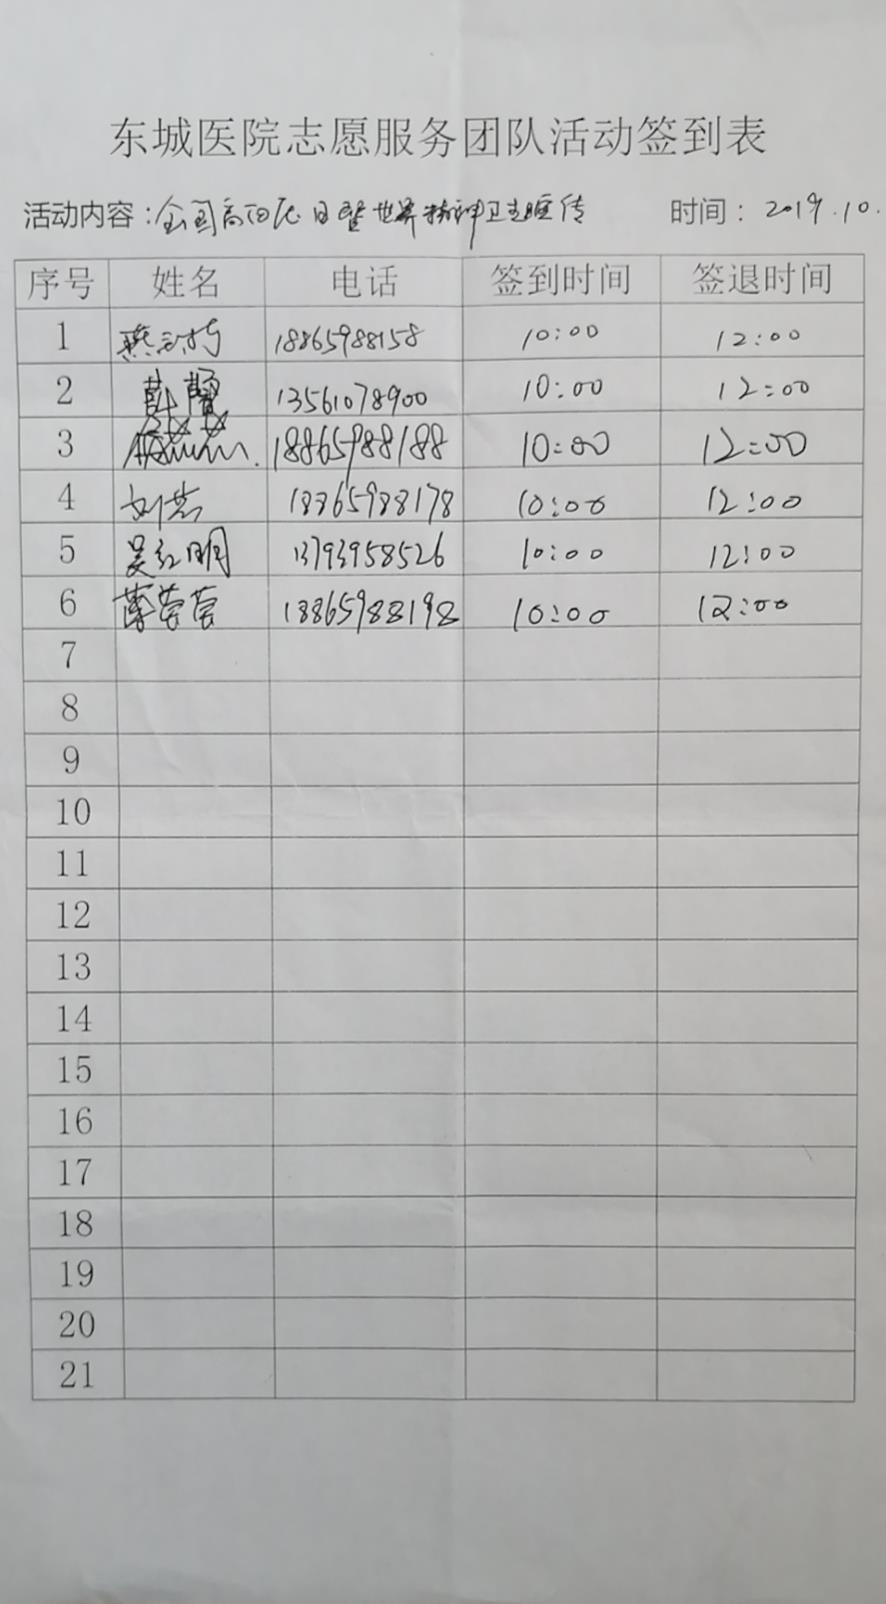 东城医院志愿服务团队活动签到表
活动内容:全国高血压日暨世界精神卫生宣传 时间: 2019.10.
序号 姓名 电话 签到时间 签退时间
1 18865988158 10:00 12:00
2 13561078900 10:00 12:00
3 18865988188 10:00 12:00
4 刘芸 18865988178 10:00 12:00
5 吴红明 13793958526 10:00 12:00
6 18865988198 10:00 12:00
7
8
9
10
11
12
13
14
15
16
17
18
19
20
21